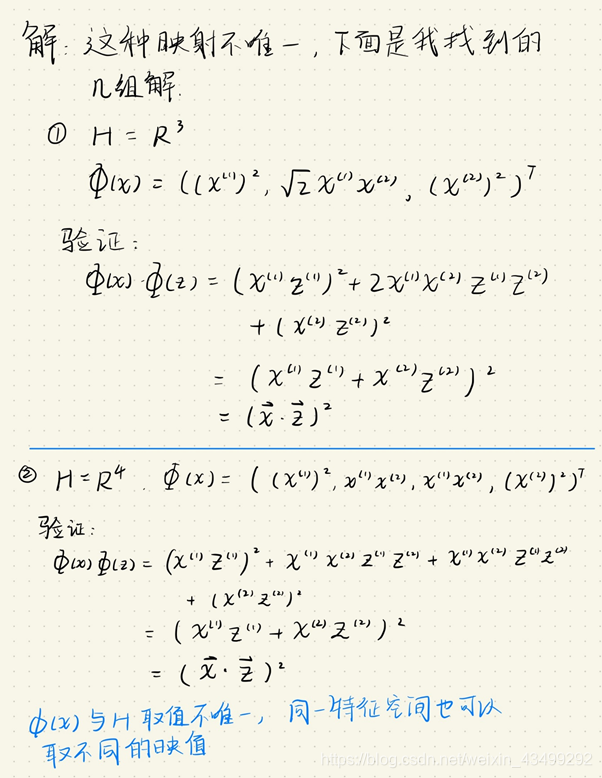 解: 这种映射不唯一, 下面是我找到的
几组解.
① H = R³
Φ(x) = ((x⁽¹⁾)², √2 x⁽¹⁾x⁽²⁾, (x⁽²⁾)²)ᵀ
验证:
Φ(x)·Φ(z) = (x⁽¹⁾z⁽¹⁾)² + 2x⁽¹⁾x⁽²⁾z⁽¹⁾z⁽²⁾
+ (x⁽²⁾z⁽²⁾)²
= (x⁽¹⁾z⁽¹⁾ + x⁽²⁾z⁽²⁾)²
= (x⃗·z⃗)²
② H=R⁴. Φ(x) = ((x⁽¹⁾)², x⁽¹⁾x⁽²⁾, x⁽¹⁾x⁽²⁾, (x⁽²⁾)²)ᵀ
验证:
Φ(x)Φ(z) = (x⁽¹⁾z⁽¹⁾)² + x⁽¹⁾x⁽²⁾z⁽¹⁾z⁽²⁾ + x⁽¹⁾x⁽²⁾z⁽¹⁾z⁽²⁾
+ (x⁽²⁾z⁽²⁾)²
= (x⁽¹⁾z⁽¹⁾ + x⁽²⁾z⁽²⁾)²
= (x⃗·z⃗)²
Φ(x)与H取值不唯一, 同一特征空间也可以
取不同的映值
https://blog.csdn.net/weixin_43499292